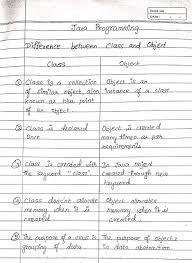 PAGE NO.
DATE:
Java Programming
Difference between Class and Object
Class
Object
① Class is a collection
of similar object also
known as the
of an object.
Object is an
instance of a class.
② Class is declared
once
Object is created
many times as per
requirement
③ Class is created with
the keyword "class".
In Java object
created through new
keyword
④ Class doesn't allocate
memory when it is
created.
Object allocates
memory when it is
created.
⑤ The purpose of a class is
grouping of data
The purpose of objects
is data abstraction